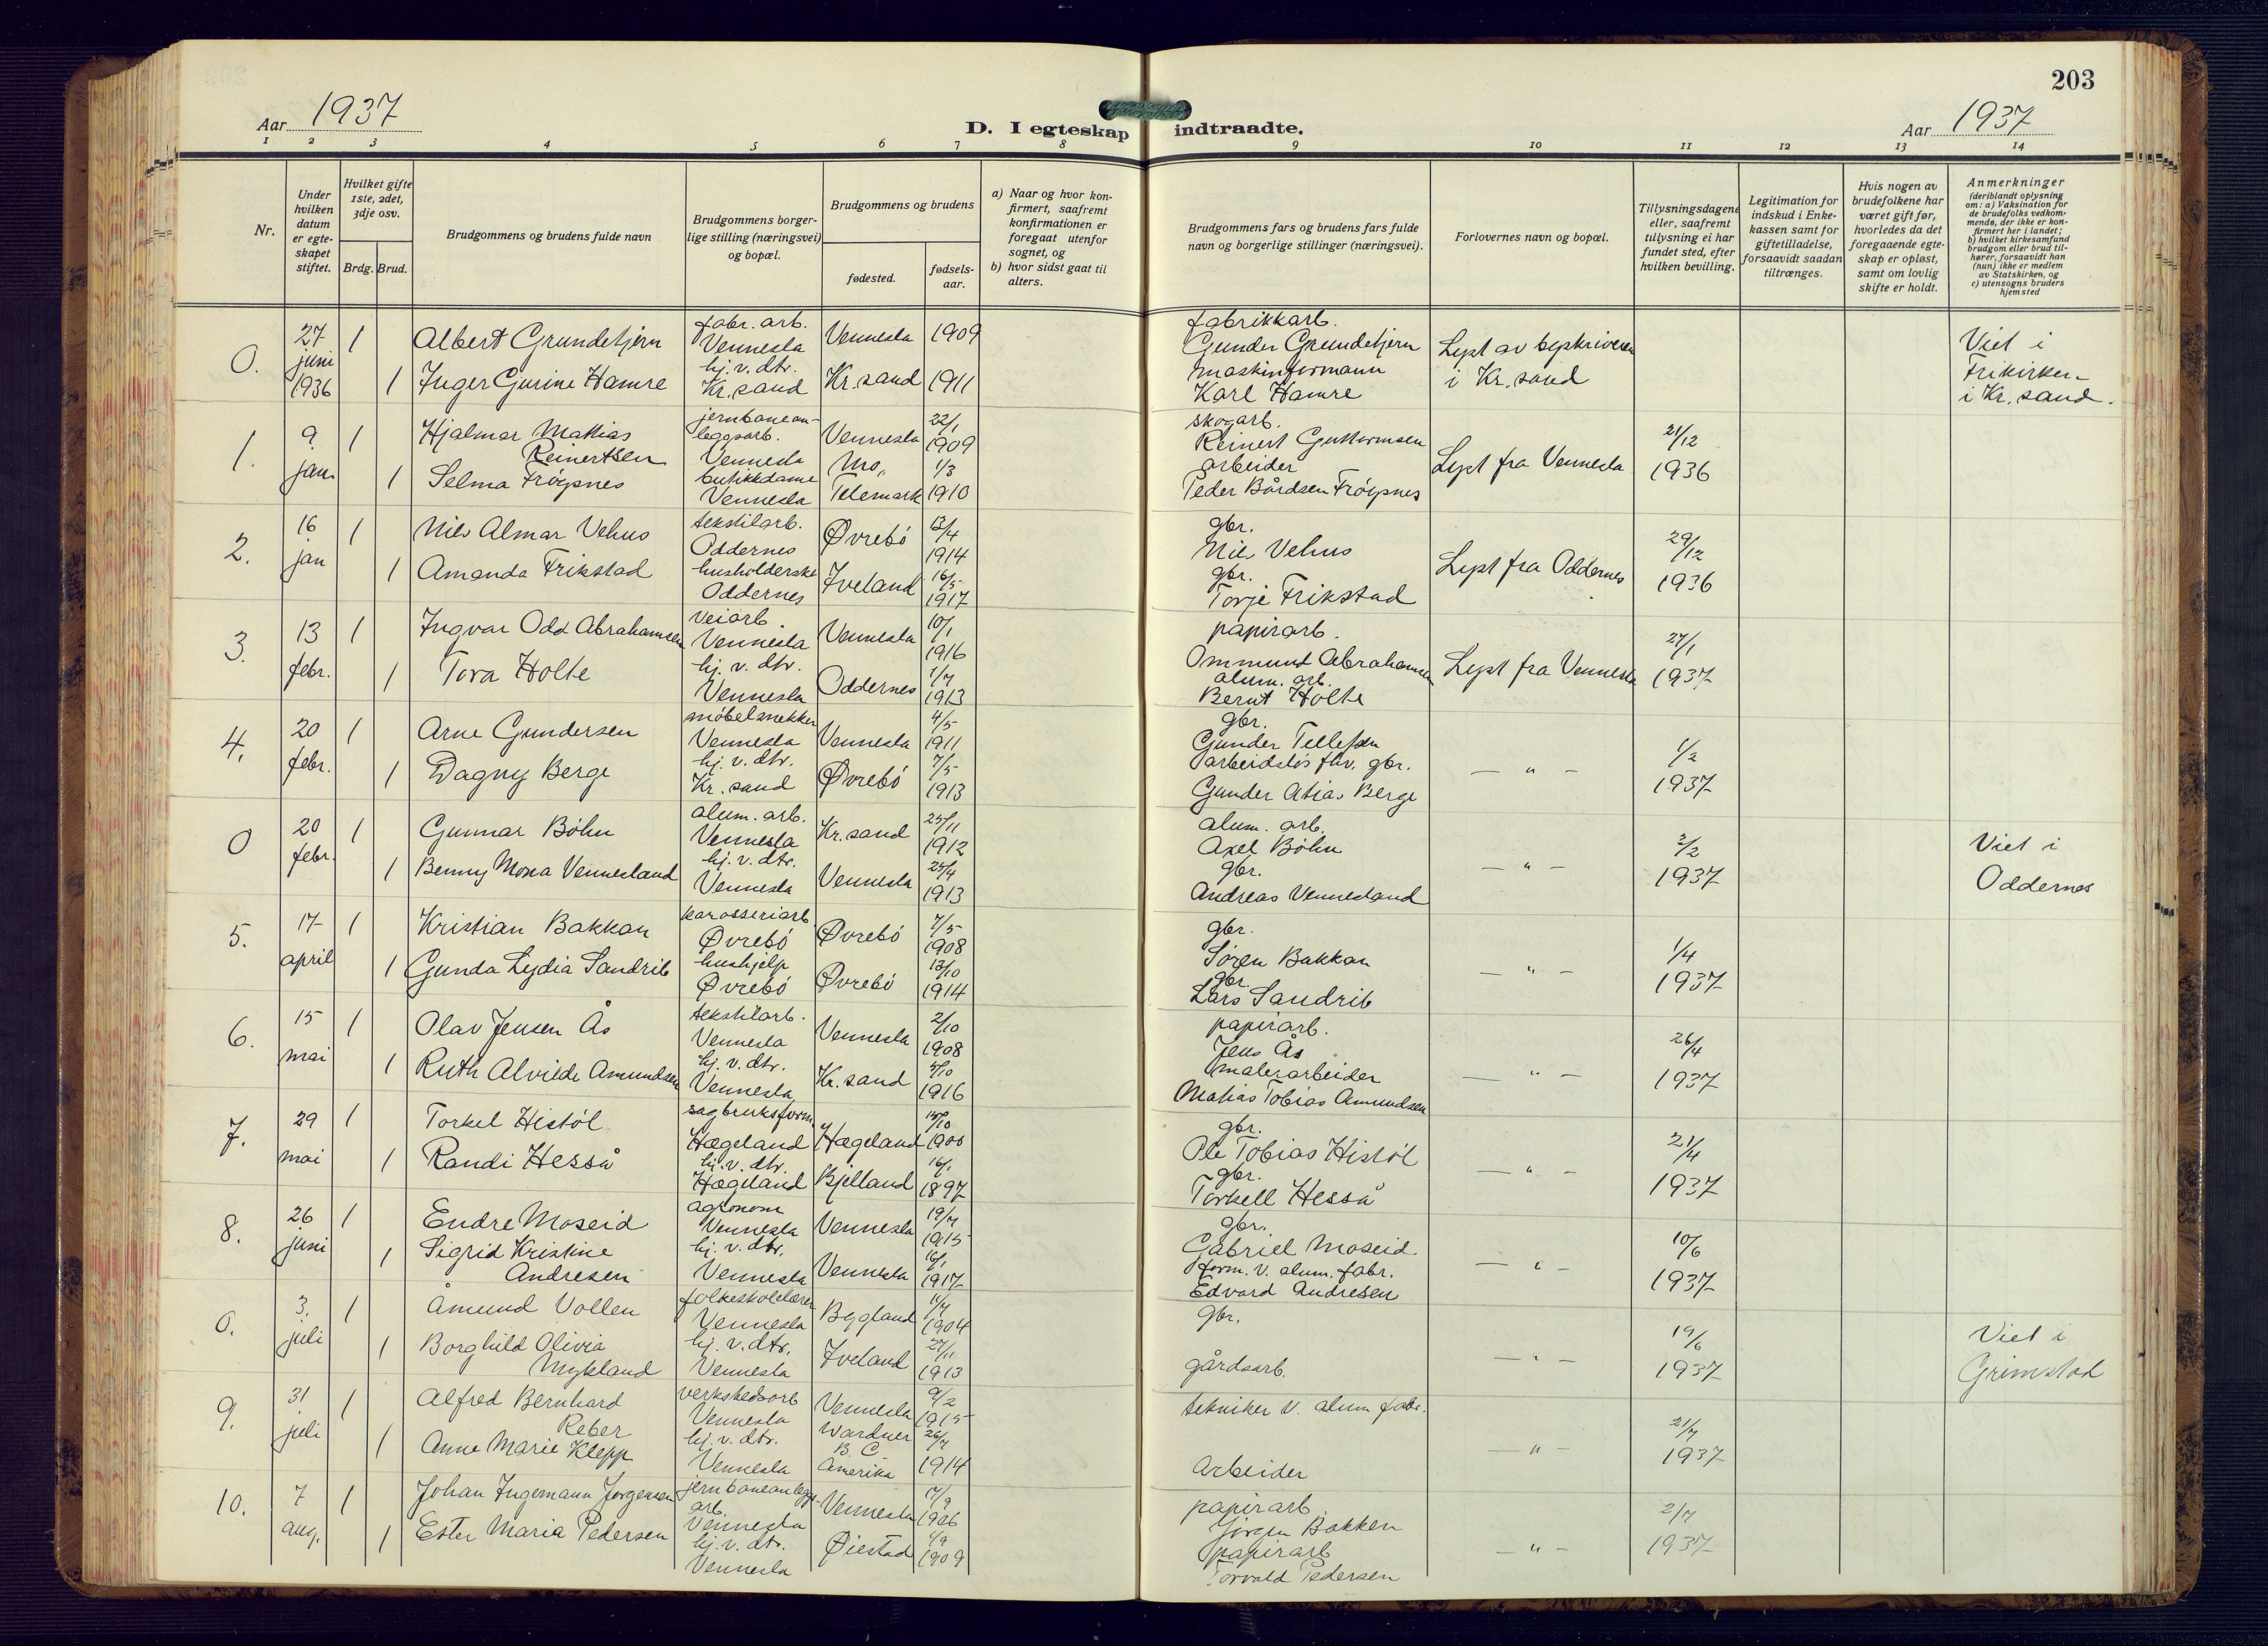 203
Aar 1937
D. I egteskap indtraadte.
Aar 1937
1 2 3 4 5 6 7 8 9 10 11 12 13 14
Nr.
Under hvilken datum er egte-skapet stiftet.
Hvilket gifte 1ste, 2det, 3dje osv.
Brdg. Brud.
Brudgommens og brudens fulde navn
Brudgommens borger-lige stilling (næringsvei) og bopæl.
Brudgommens og brudens
fødested.
fødsels-aar.
a) Naar og hvor kon-firmert, saafremt konfirmationen er foregaat utenfor sognet, og
b) hvor sidst gaat til alters.
Brudgommens fars og brudens fars fulde navn og borgerlige stillinger (næringsvei).
Forlovernes navn og bopæl.
Tillysningsdagene eller, saafremt tillysning ei har fundet sted, efter hvilken bevilling.
Legitimation for indskud i Enke-kassen samt for giftetilladelse, forsaavidt saadan tiltrænges.
Hvis nogen av brudefolkene har været gift før, hvorledes da det foregaaende egte-skap er opløst, samt om lovlig skifte er holdt.
Anmerkninger
(deriblandt oplysning om: a) Vaksination for de brudefolks vedkom-mende, der ikke er kon-firmert her i landet; b) hvilket kirkesamfund brudgom eller brud til-hører, forsaavidt han (hun) ikke er medlem av Statskirken, og c) utensogns bruders hjemsted
0. 27 juni 1936
1 Albert Grundetjern fabr. arb. Vennesla Vennesla 1909
1 Inger Gurine Hamre hj. v. dtr. Kr. sand Kr. sand 1911
fabrikkarb. Gunder Grundetjern
maskinformann Karl Hamre
Lyst av byskriveren i Kr. sand
Viet i Frikirken i Kr. sand.
1. 9 jan.
1 Hjalmar Mathias Reinertsen jernbanean-leggsarb. Vennesla Vennesla 22/1 1909
1 Selma Frøysnes butikkdame Vennesla Mo, Telemark 1/3 1910
skogarb. Reinert Guttormsen
arbeider Peder Bårdsen Frøysnes
Lyst fra Vennesla
21/12 1936
2. 16 jan
1 Nils Almar Vehus tekstilarb. Oddernes Øvrebö 13/4 1914
1 Amanda Frikstad husholderske Oddernes Iveland 16/5 1917
gbr. Nils Vehus
gbr. Torje Frikstad
Lyst fra Oddernes
29/12 1936
3. 13 febr.
1 Ingvar Odd Abrahamsen veiarb. Vennesla Vennesla 10/1 1916
1 Tora Holte hj. v. dtr. Vennesla Oddernes 1/7 1913
papirarb. Ommund Abrahamsen
alum. arb. Bernt Holte
Lyst fra Vennesla
27/1 1937
4. 20 febr.
1 Arne Gundersen møbelsnekker Vennesla Vennesla 4/5 1911
1 Dagny Berge hj. v. dtr. Kr. sand Øvrebö 7/5 1913
gbr. Gunder Tellefsen
arbeidsløs fhv. gbr. Gunder Atias Berge
— " —
1/2 1937
0 20 febr.
1 Gunnar Böhn alum. arb. Vennesla Kr. sand 1912
1 Benny Mona Vennesland hj. v. dtr. Vennesla Vennesla 1913
alum. arb. Axel Böhn
gbr. Andreas Vennesland
— " —
2/2 1937
Viet i Oddernes
5. 17 april
1 Kristian Bakkan karosseriarb. Øvrebö Øvrebö 7/5 1908
1 Gunda Lydia Sandrib hushjelp Øvrebö Øvrebö 13/10 1914
gbr. Søren Bakkan
gbr. Lars Sandrib
— " —
1/4 1937
6. 15 mai
1 Olav Jensen Ås tekstilarb. Vennesla Vennesla 2/10 1908
1 Ruth Alvilde Amundsen hj. v. dtr. Vennesla Kr. sand 1916
papirarb. Jens Ås
malerarbeider Mathias Tobias Amundsen
— " —
26/4 1937
7. 29 mai
1 Torkel Histöl sagbruksform. Hægeland Hægeland 1900
1 Randi Hesså hj. v. dtr. Hægeland Bjelland 16/1 1897
gbr. Ole Tobias Histöl
gbr. Torkell Hesså
— " —
21/4 1937
8. 26 juni
1 Endre Moseid agronom Vennesla Vennesla 19/7 1915
1 Sigrid Kristine Andresen hj. v. dtr. Vennesla Vennesla 16/1 1917
gbr. Gabriel Moseid
form. v. alum. fabr. Edvard Andresen
— " —
10/6 1937
0. 3. juli
1 Åmund Vollen folkeskolelærer Vennesla Bygland 1904
1 Borghild Olivia Mykland hj. v. dtr. Vennesla Iveland 27/11 1913
gbr.
gårdsarb.
— " —
19/6 1937
Viet i Grimstad
9. 31 juli
1 Alfred Bernhard Reber verkstedsarb Vennesla Vennesla 9/2 1915
1 Anne Marie Klepp hj. v. dtr. Vennesla Wardner B. C. Amerika 26/7 1914
tekniker v. alum fabr.
arbeider
— " —
21/7 1937
10. 7 aug.
1 Johan Ingemann Jørgensen jernbaneanlegg-arb. Vennesla Vennesla 1906
1 Ester Maria Pedersen hj. v. dtr. Vennesla Øiestad 1909
papirarb Jörgen Bakken
papirarb Torvald Pedersen
— " —
2/7 1937